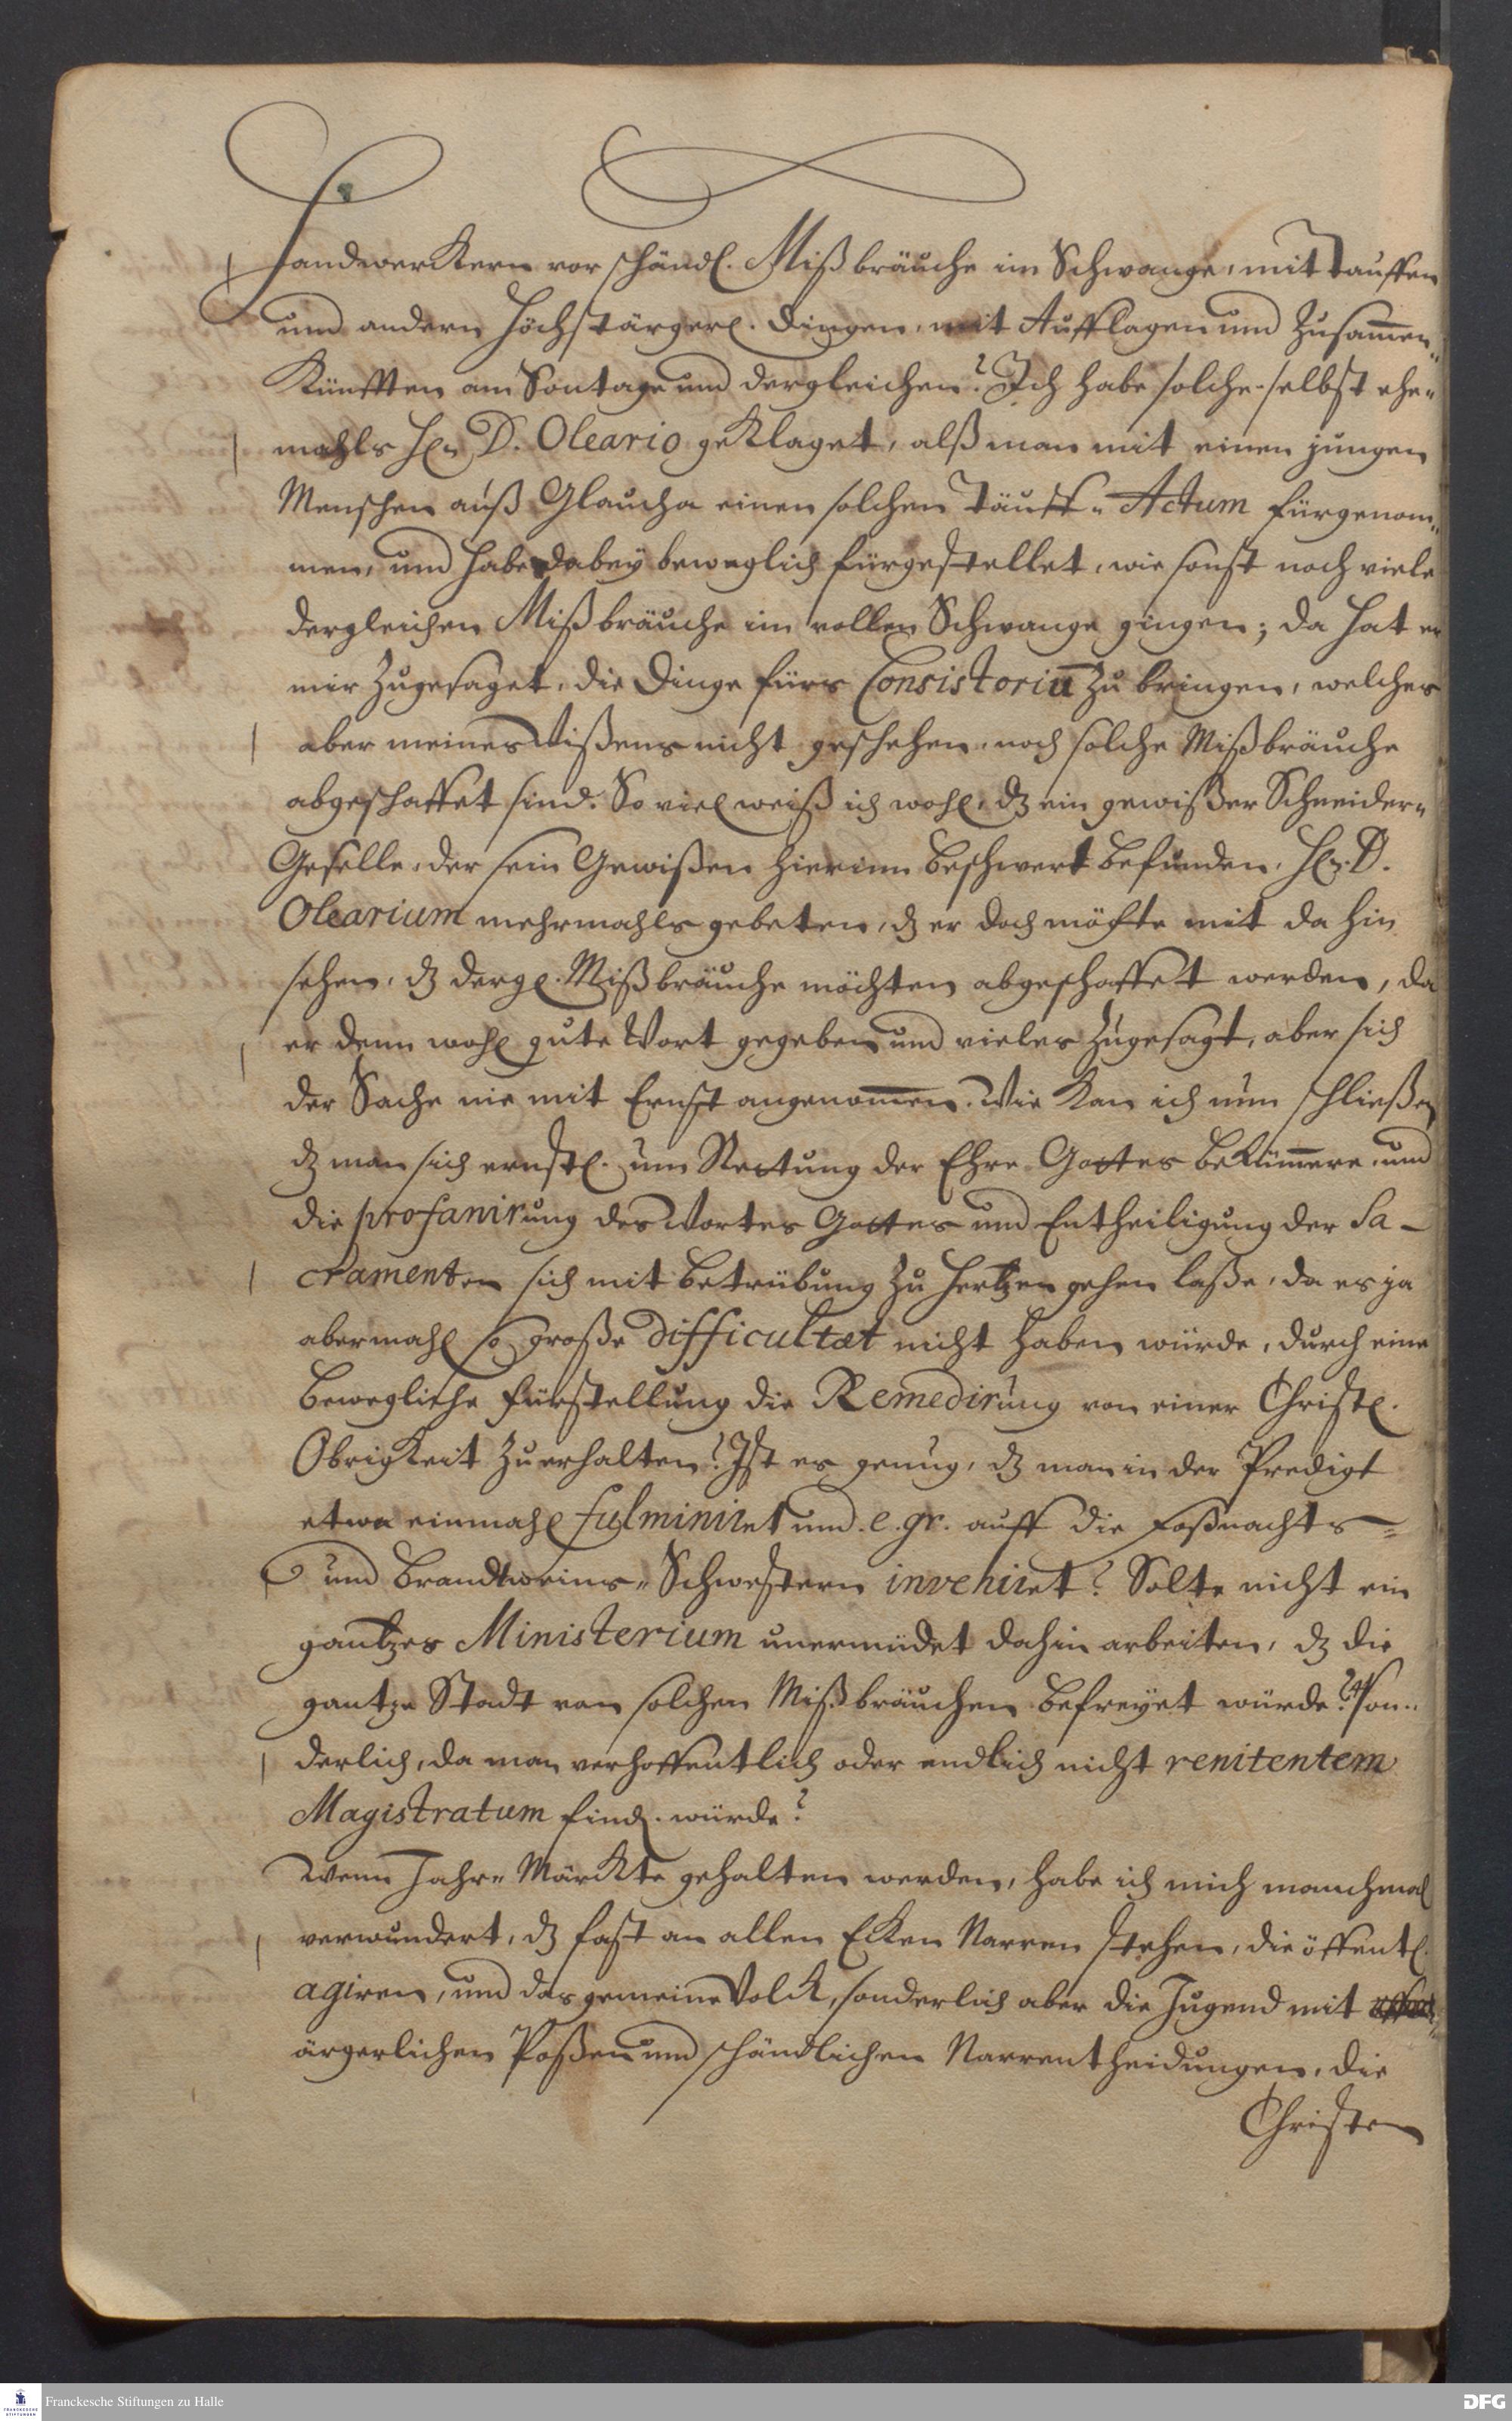 Handwerkern vor schändl. Mißbräuche im Schwange, mit Tauffen
und andern höchstärgerl. Dingen, mit Aufflagen und Zusam̅en-
Künfften am Sontage und dergleichen? Ich habe solche selbst ehe-
mahls Hn. D. Oleario geklaget, alß man mit einen jungen
Menschen auß Glaucha einen solchen Täuff-Actum fürgenom-
men, und habe dabey beweglich fürgestellet, wie sonst noch viele
dergleichen Mißbräuche im vollen Schwange gingen; da hat er
mir zugesaget, die Dinge fürs Consistoriu̅ zu bringen, welches
aber meines Wißens nicht geschehen, noch solche Mißbräuche
abgeschaffet sind. So viel weiß ich wohl, dz ein gewißer Schneider-
Geselle, der sein Gewißen hierinn beschwert befunden, Hn. D.
Olearium mehrmahls gebeten, dz er doch möchte mit da hin
sehen, dz dergl. Mißbräuche möchten abgeschaffet werden, da
er denn wohl gute Wort gegeben und vieles zugesagt, aber sich
der Sache nie mit Ernst angenom̅en. Wie kan ich nun schließen
dz man sich ernstl. um Rettung der Ehre Gottes beküm̅ere, und
die profanirung des Wortes Gottes und Entheiligung der Sa-
cramenten sich mit Betrübung zu Hertzen gehen laße, da es ja
abermahl so große difficultæt nicht haben würde, durch eine
bewegliche Fürstellung die Remedirung von einer Christl.
Obrigkeit zu erhalten? Ist es genug, dz man in der Predigt
etwa einmahl fulminiret und e. gr. auff die Faßnachts-
und Brandtweins-Schwestern invehiret? Solte nicht ein
gantzes Ministerium unermüdet dahin arbeiten, dz die
gantze Stadt von solchen Mißbräuchen befreyet würde? son-
derlich, da man verhoffentlich oder endlich nicht renitentem
Magistratum find. würde?
Wenn Jahr-Märckte gehalten werden, habe ich mich manchmal
verwundert, dz fast an allen Ecken Narren stehen, die öffentl.
agiren, und das gemeine Volck, sonderlich aber die Jugend mit
ärgerlichen Poßen und schändlichen Narrentheidungen, die
Christen
Franckesche Stiftungen zu Halle
DFG